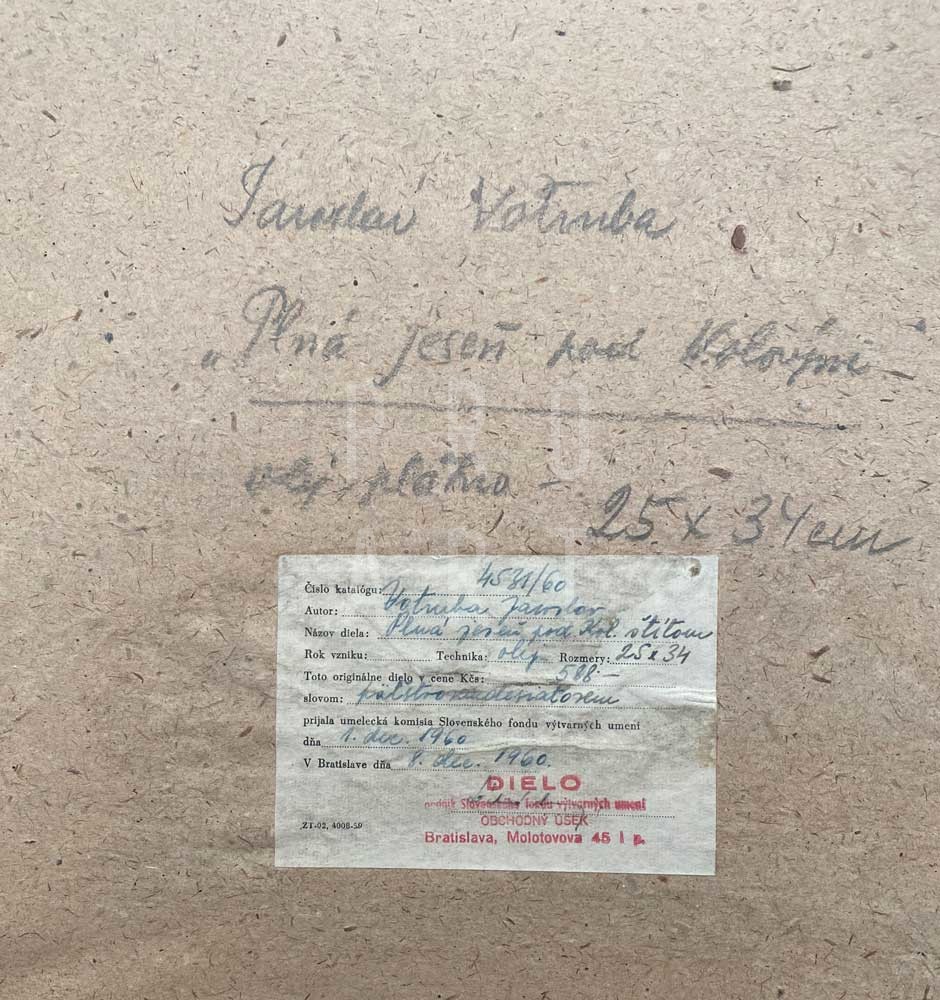 Jaroslav Votruba
„Plná jeseň pod Kolovým -
olej, plátno - 25 x 34 cm
PRO
ART
Číslo katalógu: 4531/60
Autor: Votruba Jaroslav
Názov diela: Plná jeseň pod Kol. štítom
Rok vzniku: Technika: olej Rozmery: 25 x 34
Toto originálne dielo v cene Kčs:
slovom:
prijala umelecká komisia Slovenského fondu výtvarných umení
dňa 1. dec. 1960
V Bratislave dňa 8. dec. 1960.
DIELO
podnik Slovenského fondu výtvarných umení
OBCHODNÝ ÚSEK
ZT-02, 4008-59
Bratislava, Molotovova 45 I p.